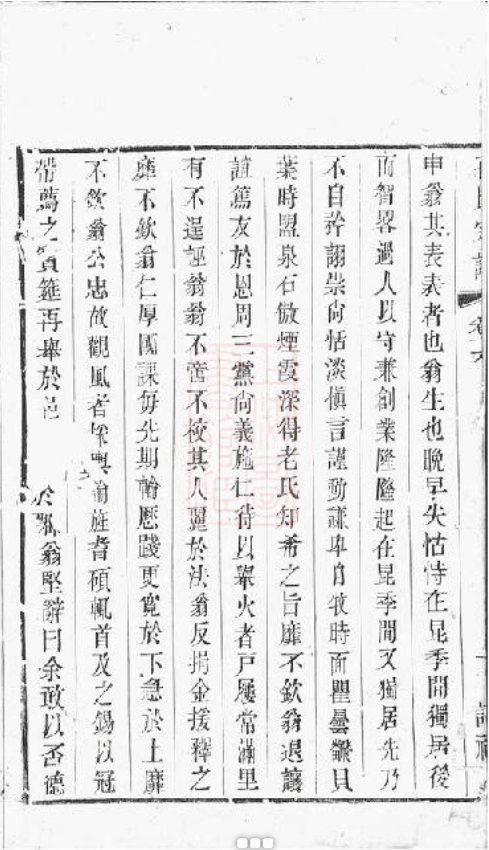 卷六
申翁其表表者也翁生也晚早失怙恃在昆季間獨居後
而智畧過人以守兼創業隆隆起在昆季間又獨居先乃
不自矜詡崇尙恬淡愼言謹動謙卑自牧時面瞿曇繙貝
葉時盟泉石傲煙霞深得老氏知希之旨靡不欽翁退讓
誼篤友於恩周三黨尙義施仁待以舉火者戶屨常滿里
有不逞誣翁翁不啻不校其人麗於法翁反捐金援釋之
靡不欽翁仁厚國課每先期輸歷踐更寬於下急於上靡
不欽翁公忠故觀風者採輿論旌耆碩輒首及之錫以冠
帶薦之賓筵再舉於邑 於 翁堅辭曰余敢以否德